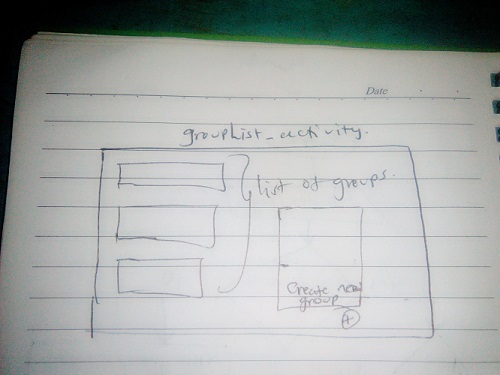 Date
groupList_activity.
list of groups.
Create new
group
+